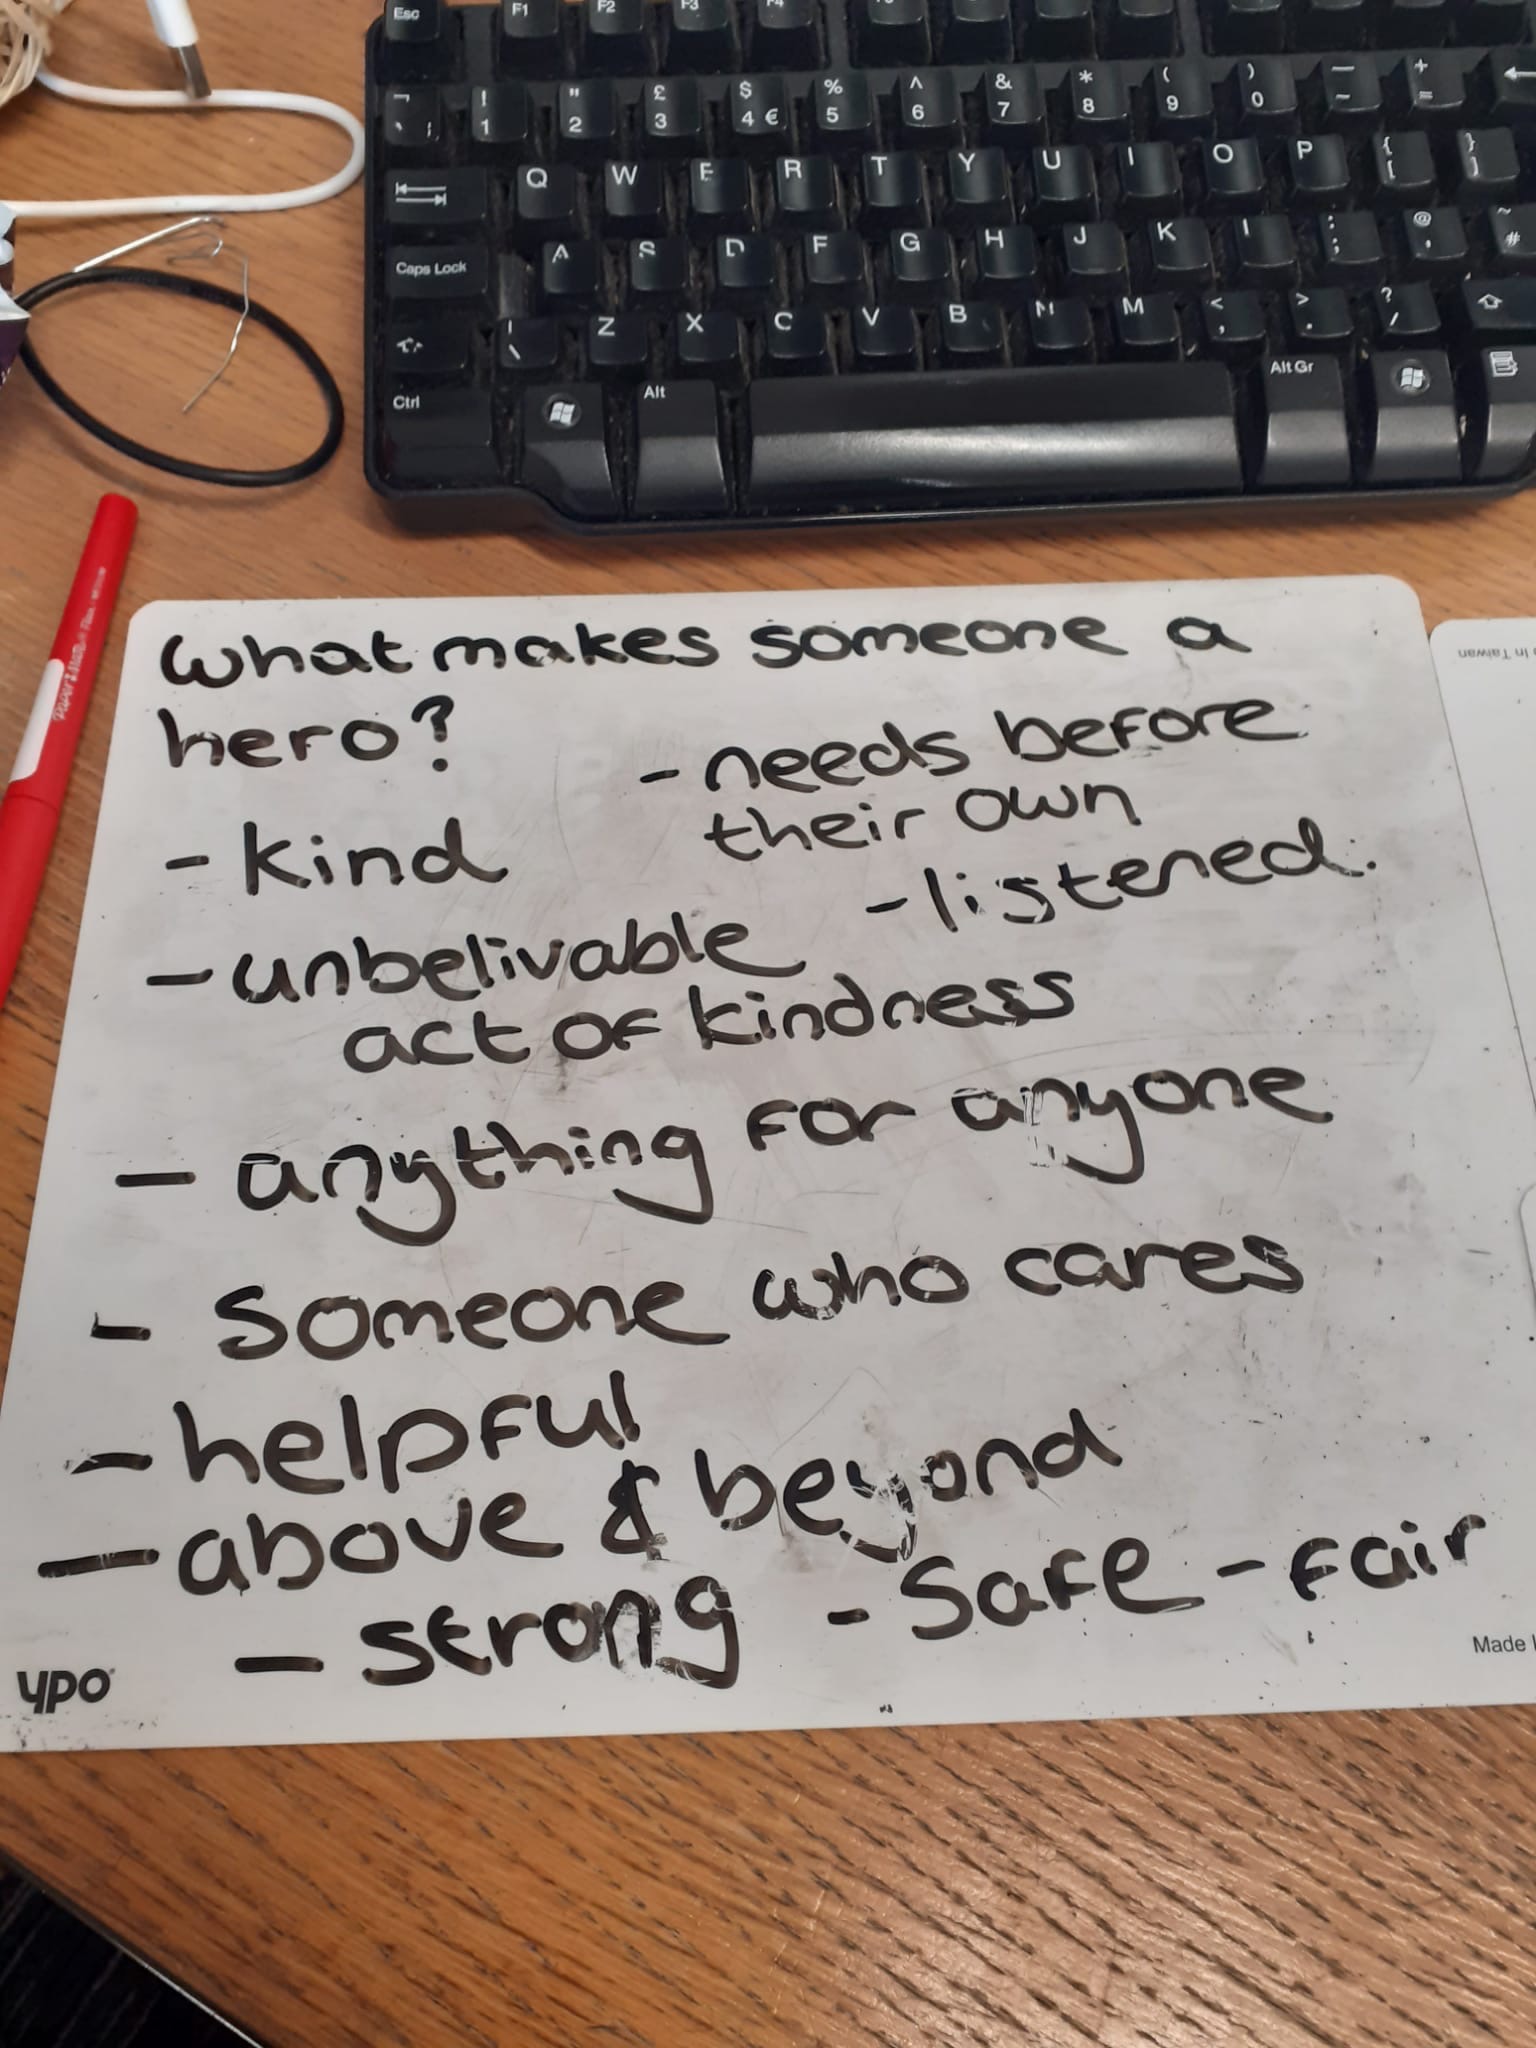 Esc F1 F2 F3 F4
¬ ! " £ $ % ^ & * ( ) _ +
` ¦ 1 2 3 4 € 5 6 7 8 9 0 - =
Q W E R T Y U I O P { }
[ ]
Caps Lock A S D F G H J K L : @ ~
; ' #
| Z X C V B N M < > ?
\ , . /
Ctrl Alt Alt Gr
In Taiwan
what makes someone a
hero?
- needs before
their own
- kind
- listened.
- unbelivable
act of kindness
- anything for anyone
- Someone who cares
- helpful
- above & beyond
- strong - Safe - fair
ypo
Made